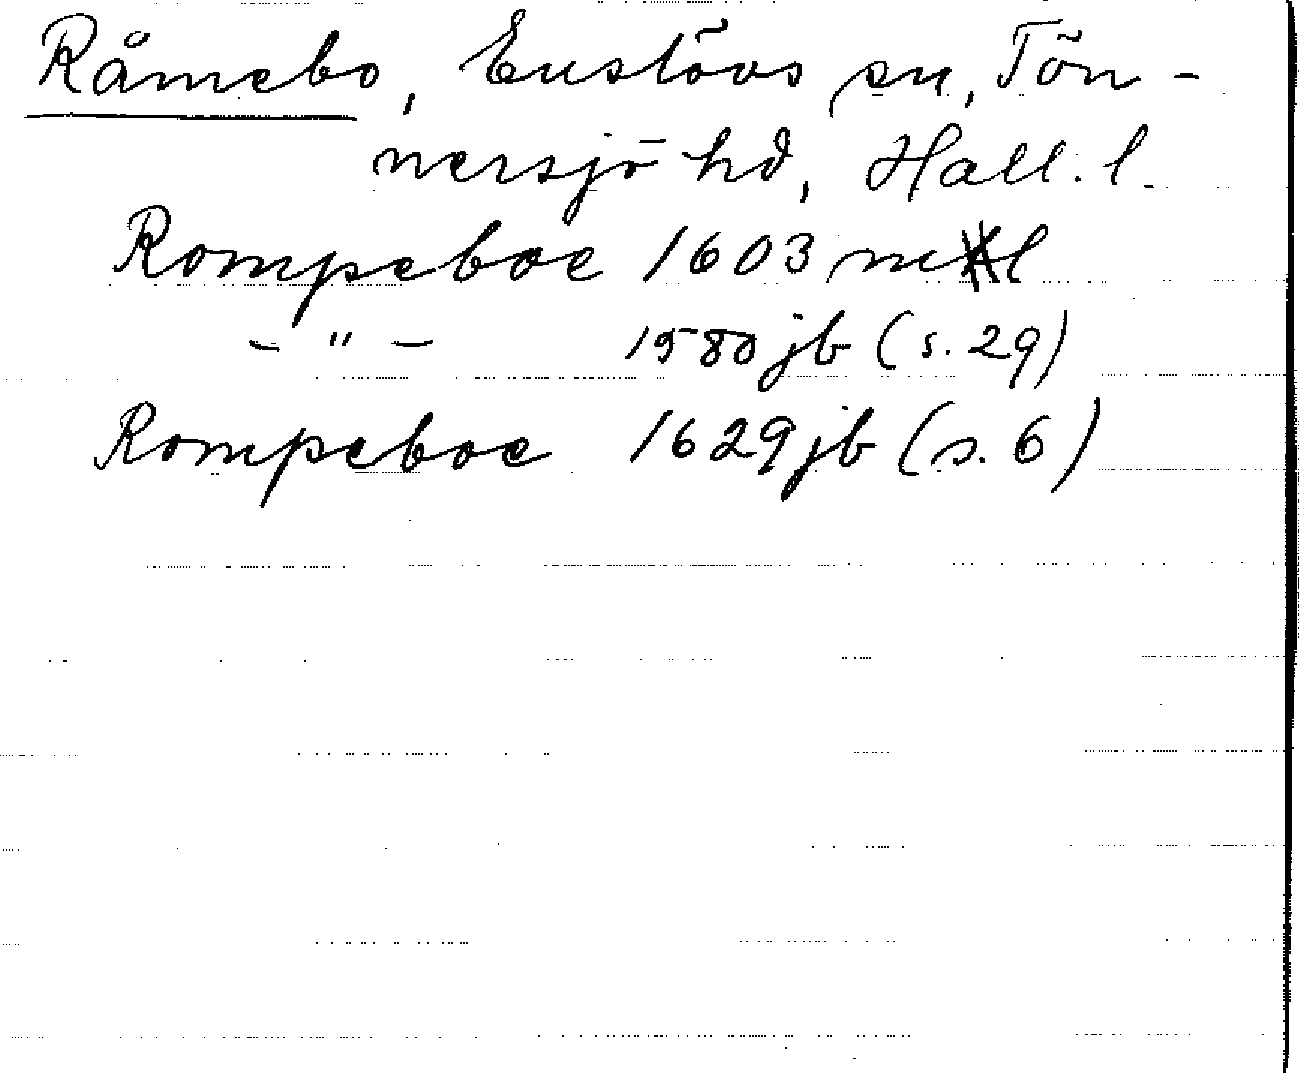 Råmebo, Enslövs sn, Tön-
nersjö hd, Hall. l.
Rompeboe 1603 ml
- " - 1580 jb (s. 29)
Rompeboe 1629 jb (s. 6)